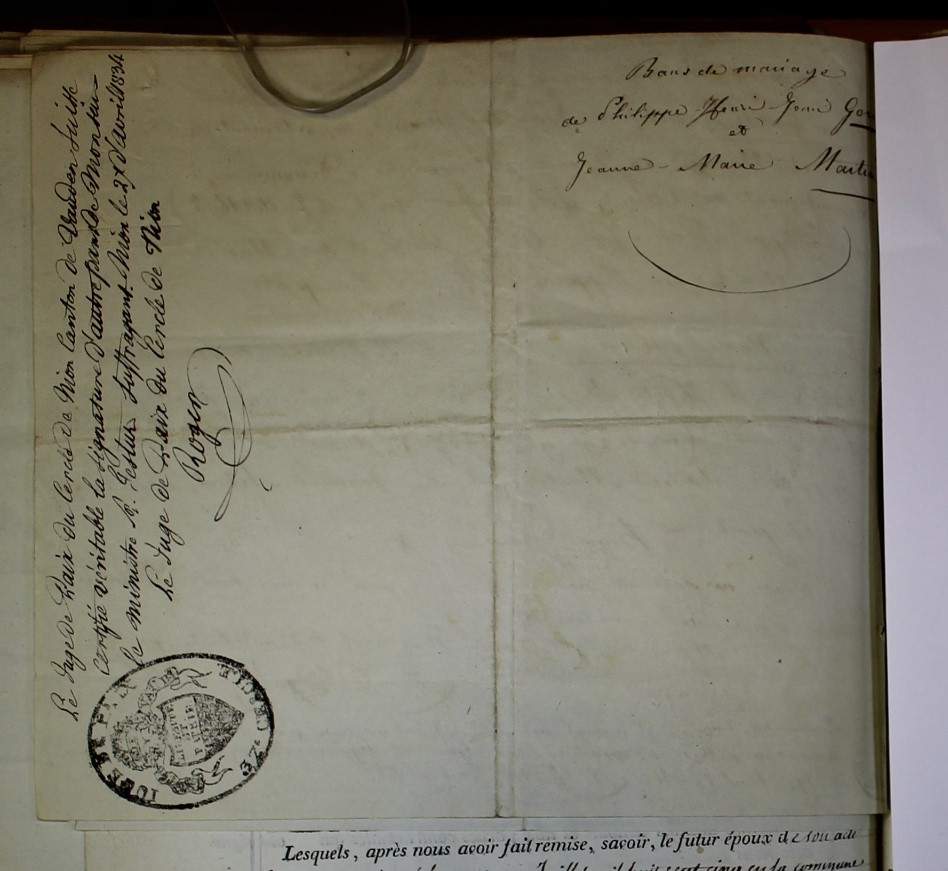 Bans de mariage
de Philippe Henri Jean
et
Jeanne-Marie
Le Juge de Paix du Cercle de Nion Canton de Vaud en Suisse
certifie véritable la signature d'autre part de Monsieur
le ministre Testuz suffragant. Nion le 27 d'avril 1834
Le Juge de Paix du Cercle de Nion
Roger
JUGE DE PAIX
CERCLE
LIBERTÉ
ET
PATRIE
Lesquels, après nous avoir fait remise, savoir, le futur époux de son acte
la commune